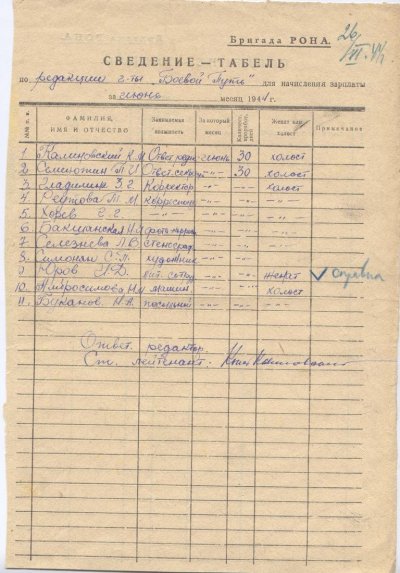 Бригада РОНА.
26/VI-44
СВЕДЕНИЕ — ТАБЕЛЬ
по редакции г-ты „Боевой Путь" для начисления зарплаты
за июнь месяц 1944 г.
№№ п. п. ФАМИЛИЯ, ИМЯ И ОТЧЕСТВО Занимаемая должность За который месяц Количест. проработ. дней Женат или холост Примечание
1 Калиновский К.М Ответ.редак. июнь 30 холост
2 Семенютин Т.И Ответ.секр. -„- 30 холост
3 Гладилин З.Г. Корректор -„- холост
4 Реутова Т.М. корректор -„- -„- -„-
5 Хорев Г.Г. -„- -„- -„- -„-
6 Бакшанская фото-корр. -„- -„- -„-
7 Селезнева Л.В. Стеногр. -„- -„- -„-
8 Симонян С.Л. художник -„- -„-
9 Юров Г.Д. лит. сотруд. -„- -„- женат справка
10 Амбросимова машин. -„- -„- холост
11 Буханов Н.А. посыльный -„- -„- -„-
Ответ. редактор
Ст. лейтенант.